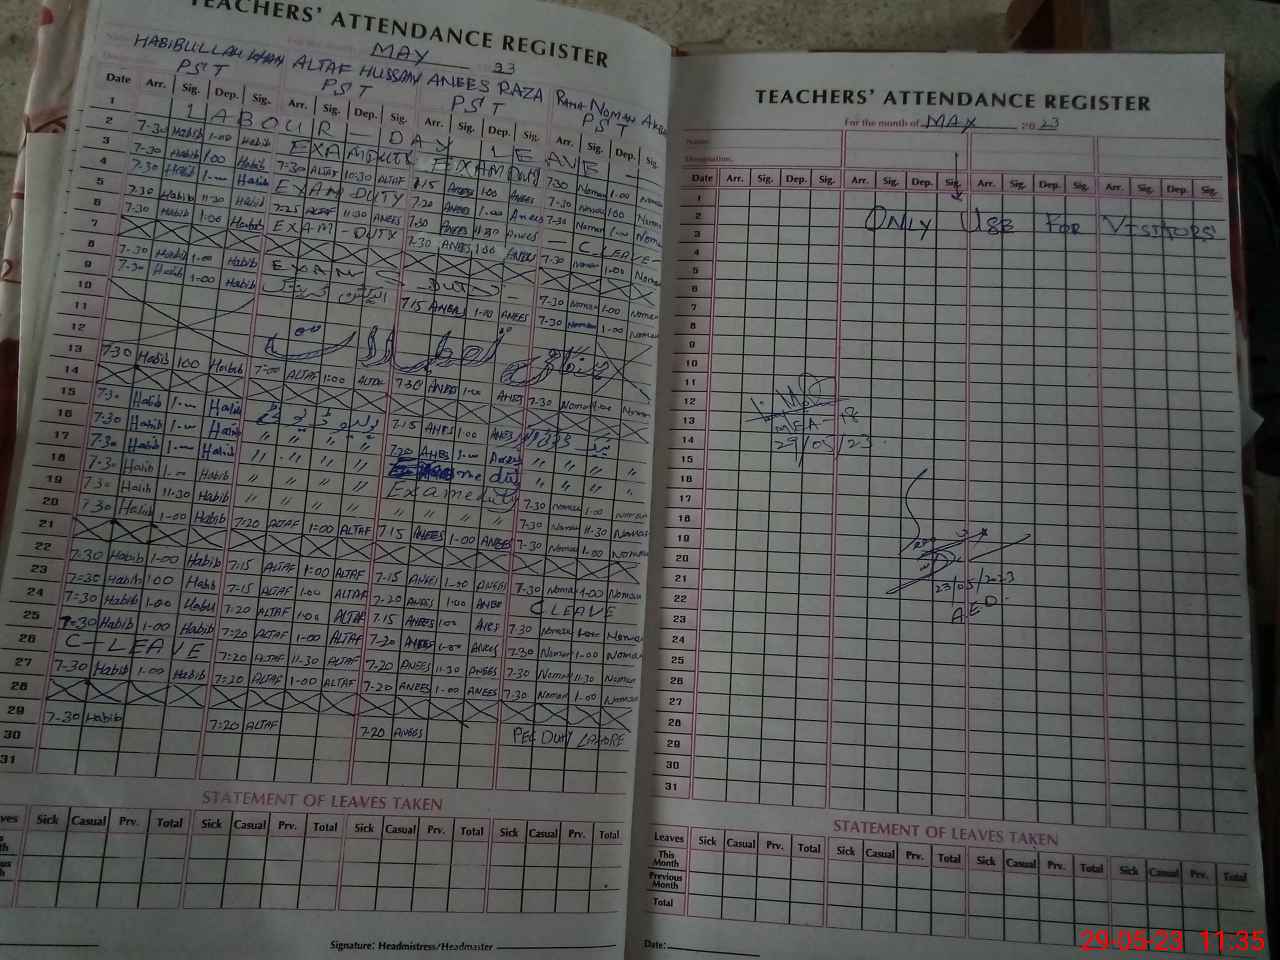 TEACHERS' ATTENDANCE REGISTER
For the month MAY 23
HABIBULLAH KHAN ALTAF HUSSAIN ANEES RAZA RANA NOMAN
PST PST PST PST
Date Arr. Sig. Dep. Sig. Arr. Sig. Dep. Sig. Arr. Sig. Dep. Sig. Arr. Sig. Dep. Sig.
1 LABOUR - DAY LEAVE -
2 7-30 Habib 1-00 Habib EXAM DUTY EXAM DUTY 7-30 Noman 1-00 Noman
3 7-30 Habib 1-00 Habib 7-30 ALTAF 10-30 ALTAF 7-15 ANEES 1-00 ANEES 7-30 Noman 1-00 Noman
4 7-30 Habib 1-00 Habib EXAM DUTY 7-20 ANEES 1-00 Anees 7-30 Noman 1-00 Noman
5 7-30 Habib 11-30 Habib 7-25 ALTAF 11-30 7-30 ANEES 11-30 ANEES - C LEAVE -
6 7-30 Habib 1-00 Habib EXAM - DUTY 7-30 ANEES 1-00 ANEES 7-30 Noman 1-00 Noman
7
8 7-30 Habib 1-00 Habib EXAM DUTY - 7-30 Noman 1-00 Noman
9 7-30 Habib 1-00 Habib 7-15 ANEES 1-00 ANEES 7-30 Noman 1-00 Noman
10
11
12
13 7-30 Habib 1-00 Habib 7-00 ALTAF 1-00 ALTAF 7-30 ANEES 1-00 ANEES 7-30 Noman 1-00 Noman
14
15 7-30 Habib 1-00 Habib 7-15 ANEES 1-00 ANEES
16 7-30 Habib 1-00 Habib " " " " 7-20 ANEES 1-00 Anees " " " "
17 7-30 Habib 1-00 Habib " " " " " " " "
18 7-30 Habib 1-00 Habib " " " " Exame duty 7-30 Noman 1-00 Noman
19 7-30 Habib 11-30 Habib " " " " " " " " 7-30 Noman 11-30 Noman
20 7-30 Habib 1-00 Habib 7-20 ALTAF 1-00 ALTAF 7-15 ANEES 1-00 ANEES 7-30 Noman 1-00 Noman
21
22 7-30 Habib 1-00 Habib 7-15 ALTAF 1-00 ALTAF 7-15 ANEES 1-00 ANEES 7-30 Noman 1-00 Noman
23 7-30 Habib 1-00 Habib 7-15 ALTAF 1-00 ALTAF 7-20 ANEES 1-00 ANEES C LEAVE
24 7-30 Habib 1-00 Habib 7-20 ALTAF 1-00 ALTAF 7-15 ANEES 1-00 ANEES 7-30 Noman 1-00 Noman
25 7-30 Habib 1-00 Habib 7-20 ALTAF 1-00 ALTAF 7-20 ANEES 1-00 ANEES 7-30 Noman 1-00 Noman
26 C - LEAVE 7-20 ALTAF 11-30 ALTAF 7-20 ANEES 11-30 ANEES 7-30 Noman 11-30 Noman
27 7-30 Habib 1-00 Habib 7-20 ALTAF 1-00 ALTAF 7-20 ANEES 1-00 ANEES 7-30 Noman 1-00 Noman
28
29 7-30 Habib 7-20 ALTAF 7-20 ANEES PEC DUTY LAHORE
30
31
STATEMENT OF LEAVES TAKEN
Sick Casual Prv. Total Sick Casual Prv. Total Sick Casual Prv. Total Sick Casual Prv. Total
Signature: Headmistress/Headmaster
TEACHERS' ATTENDANCE REGISTER
For the month of MAY 2023
Name:
Designation.
Date Arr. Sig. Dep. Sig. Arr. Sig. Dep. Sig. Arr. Sig. Dep. Sig. Arr. Sig. Dep. Sig.
1
2 ONLY USE FOR VISITORS
3
4
5
6
7
8
9
10
11
12
13 MEA-18
14 29/05/23
15
16
17
18
19
20
21 23/05/2023
22 AEO
23
24
25
26
27
28
29
30
31
STATEMENT OF LEAVES TAKEN
Leaves Sick Casual Prv. Total Sick Casual Prv. Total Sick Casual Prv. Total Sick Casual Prv. Total
This Month
Previous Month
Total
Date:
29-05-23 11:35